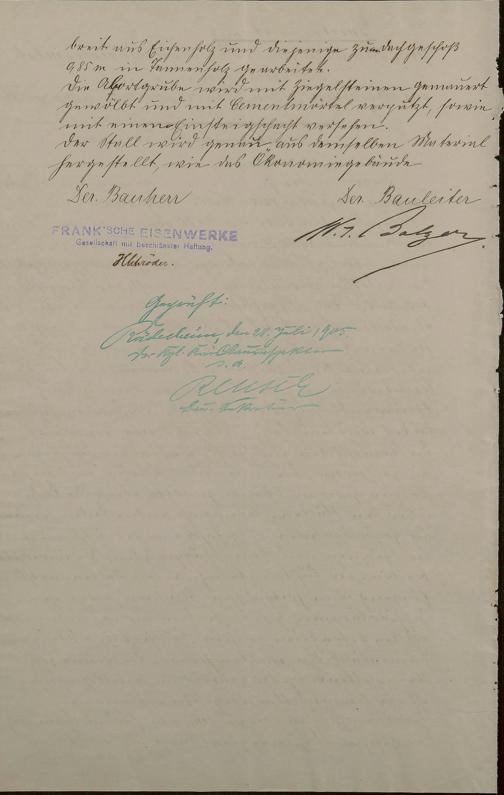 breit aus Eichenholz und diejenige zum Dachgeschoß
0,85 m in Tannenholz gearbeitet.
Die Abortgrube wird mit Ziegelsteinen gemauert
gewölbt und mit Cementmörtel verputzt, sowie
mit einem Einsteigschacht versehen.
Der Stall wird genau aus demselben Material
hergestellt, wie das Ökonomiegebäude
Der Bauherr
Der Bauleiter
FRANK'SCHE EISENWERKE
Gesellschaft mit beschränkter Haftung.
W. J. Balzer
Geprüft:
Rüdesheim, den 28. Juli 1905.
Der Kgl. Kreisbauinspektor
Bau-Sekretär